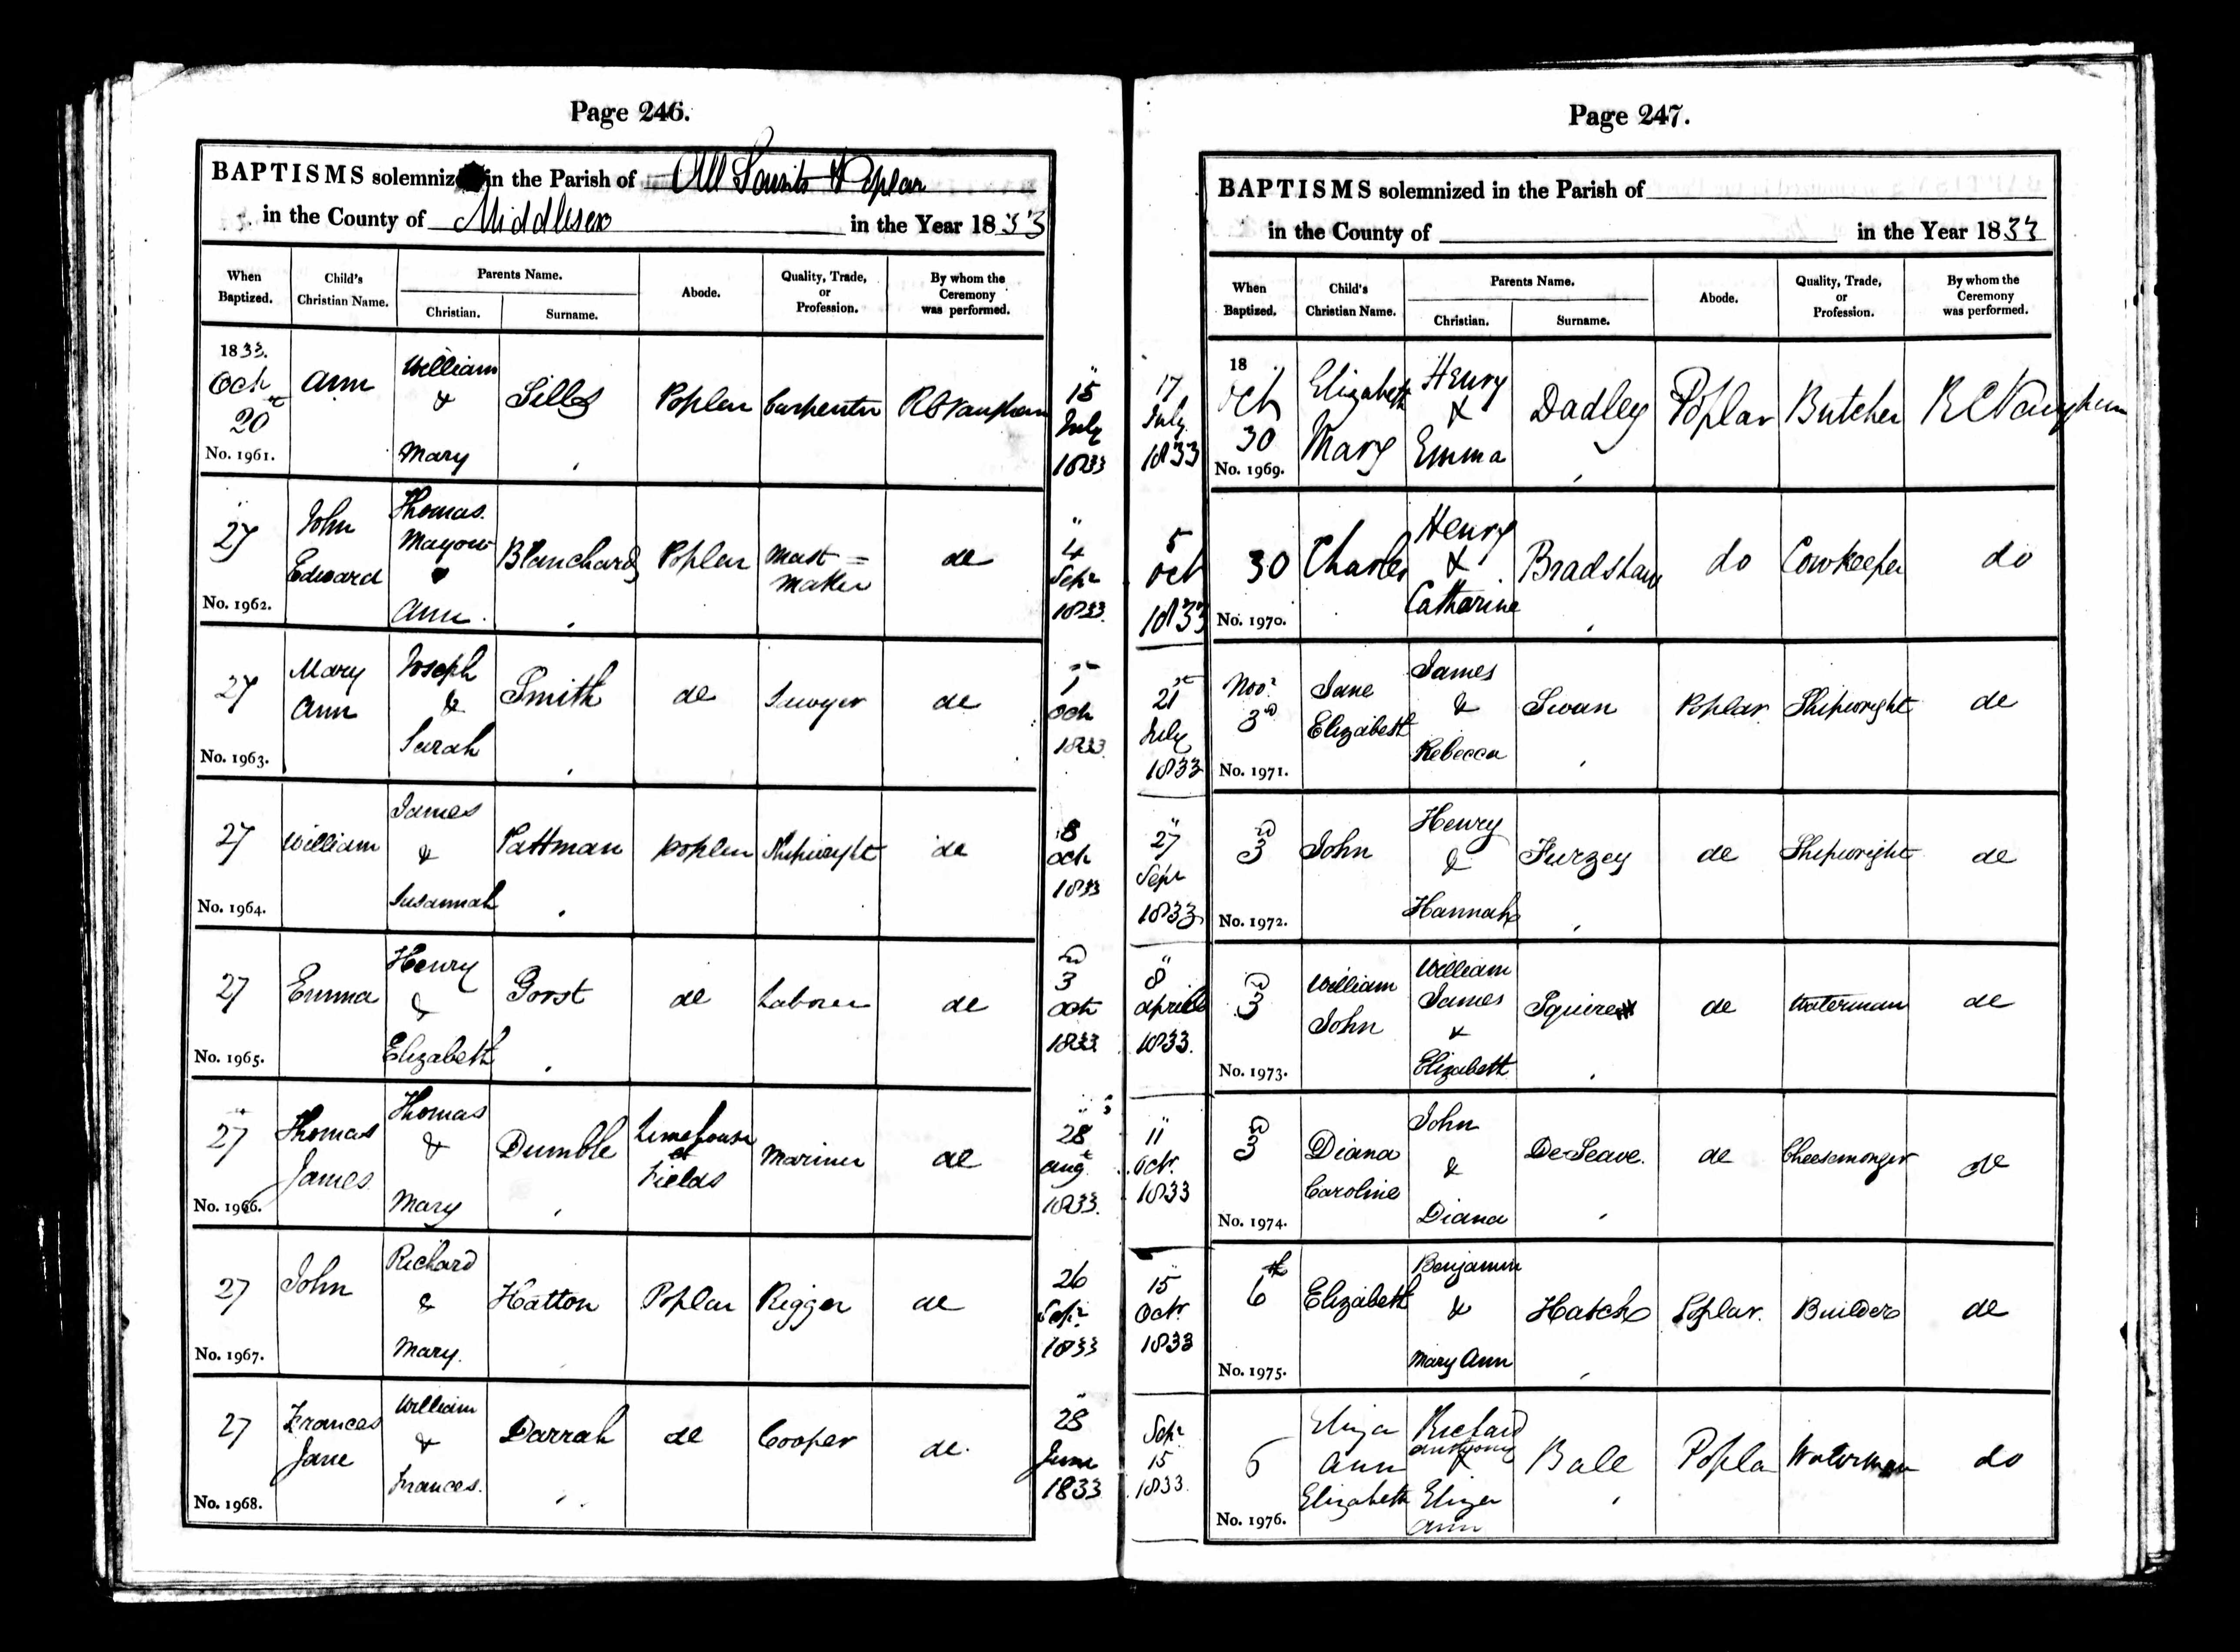 Page 246.
BAPTISMS solemniz in the Parish of All Saints Poplar
in the County of Middlesex in the Year 1833
When Baptized.
Child's Christian Name.
Parents Name.
Christian.
Surname.
Abode.
Quality, Trade, or Profession.
By whom the Ceremony was performed.
1833.
Oct
20
No. 1961.
Ann
William
&
Mary
Sills
Poplar
Carpenter
R C Vaughan
15
July
1833
27
No. 1962.
John
Edward
Thomas
Mayow
Ann
Blanchard
Poplar
Mast=
maker
do
4
Sepr
1833
27
No. 1963.
Mary
Ann
Joseph
&
Sarah
Smith
do
Sawyer
do
1
Oct
1833
27
No. 1964.
William
James
&
Susannah
Pattman
Poplar
Shipwright
do
8
Oct
1833
27
No. 1965.
Emma
Henry
&
Elizabeth
Gorst
do
Laborer
do
3
Oct
1833
27
No. 1966.
Thomas
James
Thomas
&
Mary
Dumble
Limehouse
Fields
Mariner
do
28
Aug
1833
27
No. 1967.
John
Richard
&
Mary
Hatton
Poplar
Rigger
do
26
Sepr
1833
27
No. 1968.
Frances
Jane
William
&
Frances
Darrah
do
Cooper
do
28
June
1833
Page 247.
BAPTISMS solemnized in the Parish of
in the County of in the Year 1833
When Baptized.
Child's Christian Name.
Parents Name.
Christian.
Surname.
Abode.
Quality, Trade, or Profession.
By whom the Ceremony was performed.
17
July
1833
18
Oct
30
No. 1969.
Elizabeth
Mary
Henry
&
Emma
Dadley
Poplar
Butcher
R C Vaughan
5
Oct
1833
30
No. 1970.
Charles
Henry
&
Catharine
Bradshaw
do
Cowkeeper
do
21st
July
1833
Novr
3rd
No. 1971.
Jane
Elizabeth
James
&
Rebecca
Swan
Poplar
Shipwright
do
27
Sepr
1833
3rd
No. 1972.
John
Henry
&
Hannah
Furzey
do
Shipwright
do
8
April
1833.
3rd
No. 1973.
William
John
William
James
&
Elizabeth
Squire
do
Waterman
do
11
Octr.
1833
3rd
No. 1974.
Diana
Caroline
John
&
Diana
DeSeave.
do
Cheesemonger
do
15
Octr.
1833
6th
No. 1975.
Elizabeth
Benjamin
&
Mary Ann
Hatch
Poplar.
Builder
do
Sepr
15
1833
6
No. 1976.
Eliza
Ann
Elizabeth
Richard
&
Eliza
Ann
Bale
Popla
Waterman
do